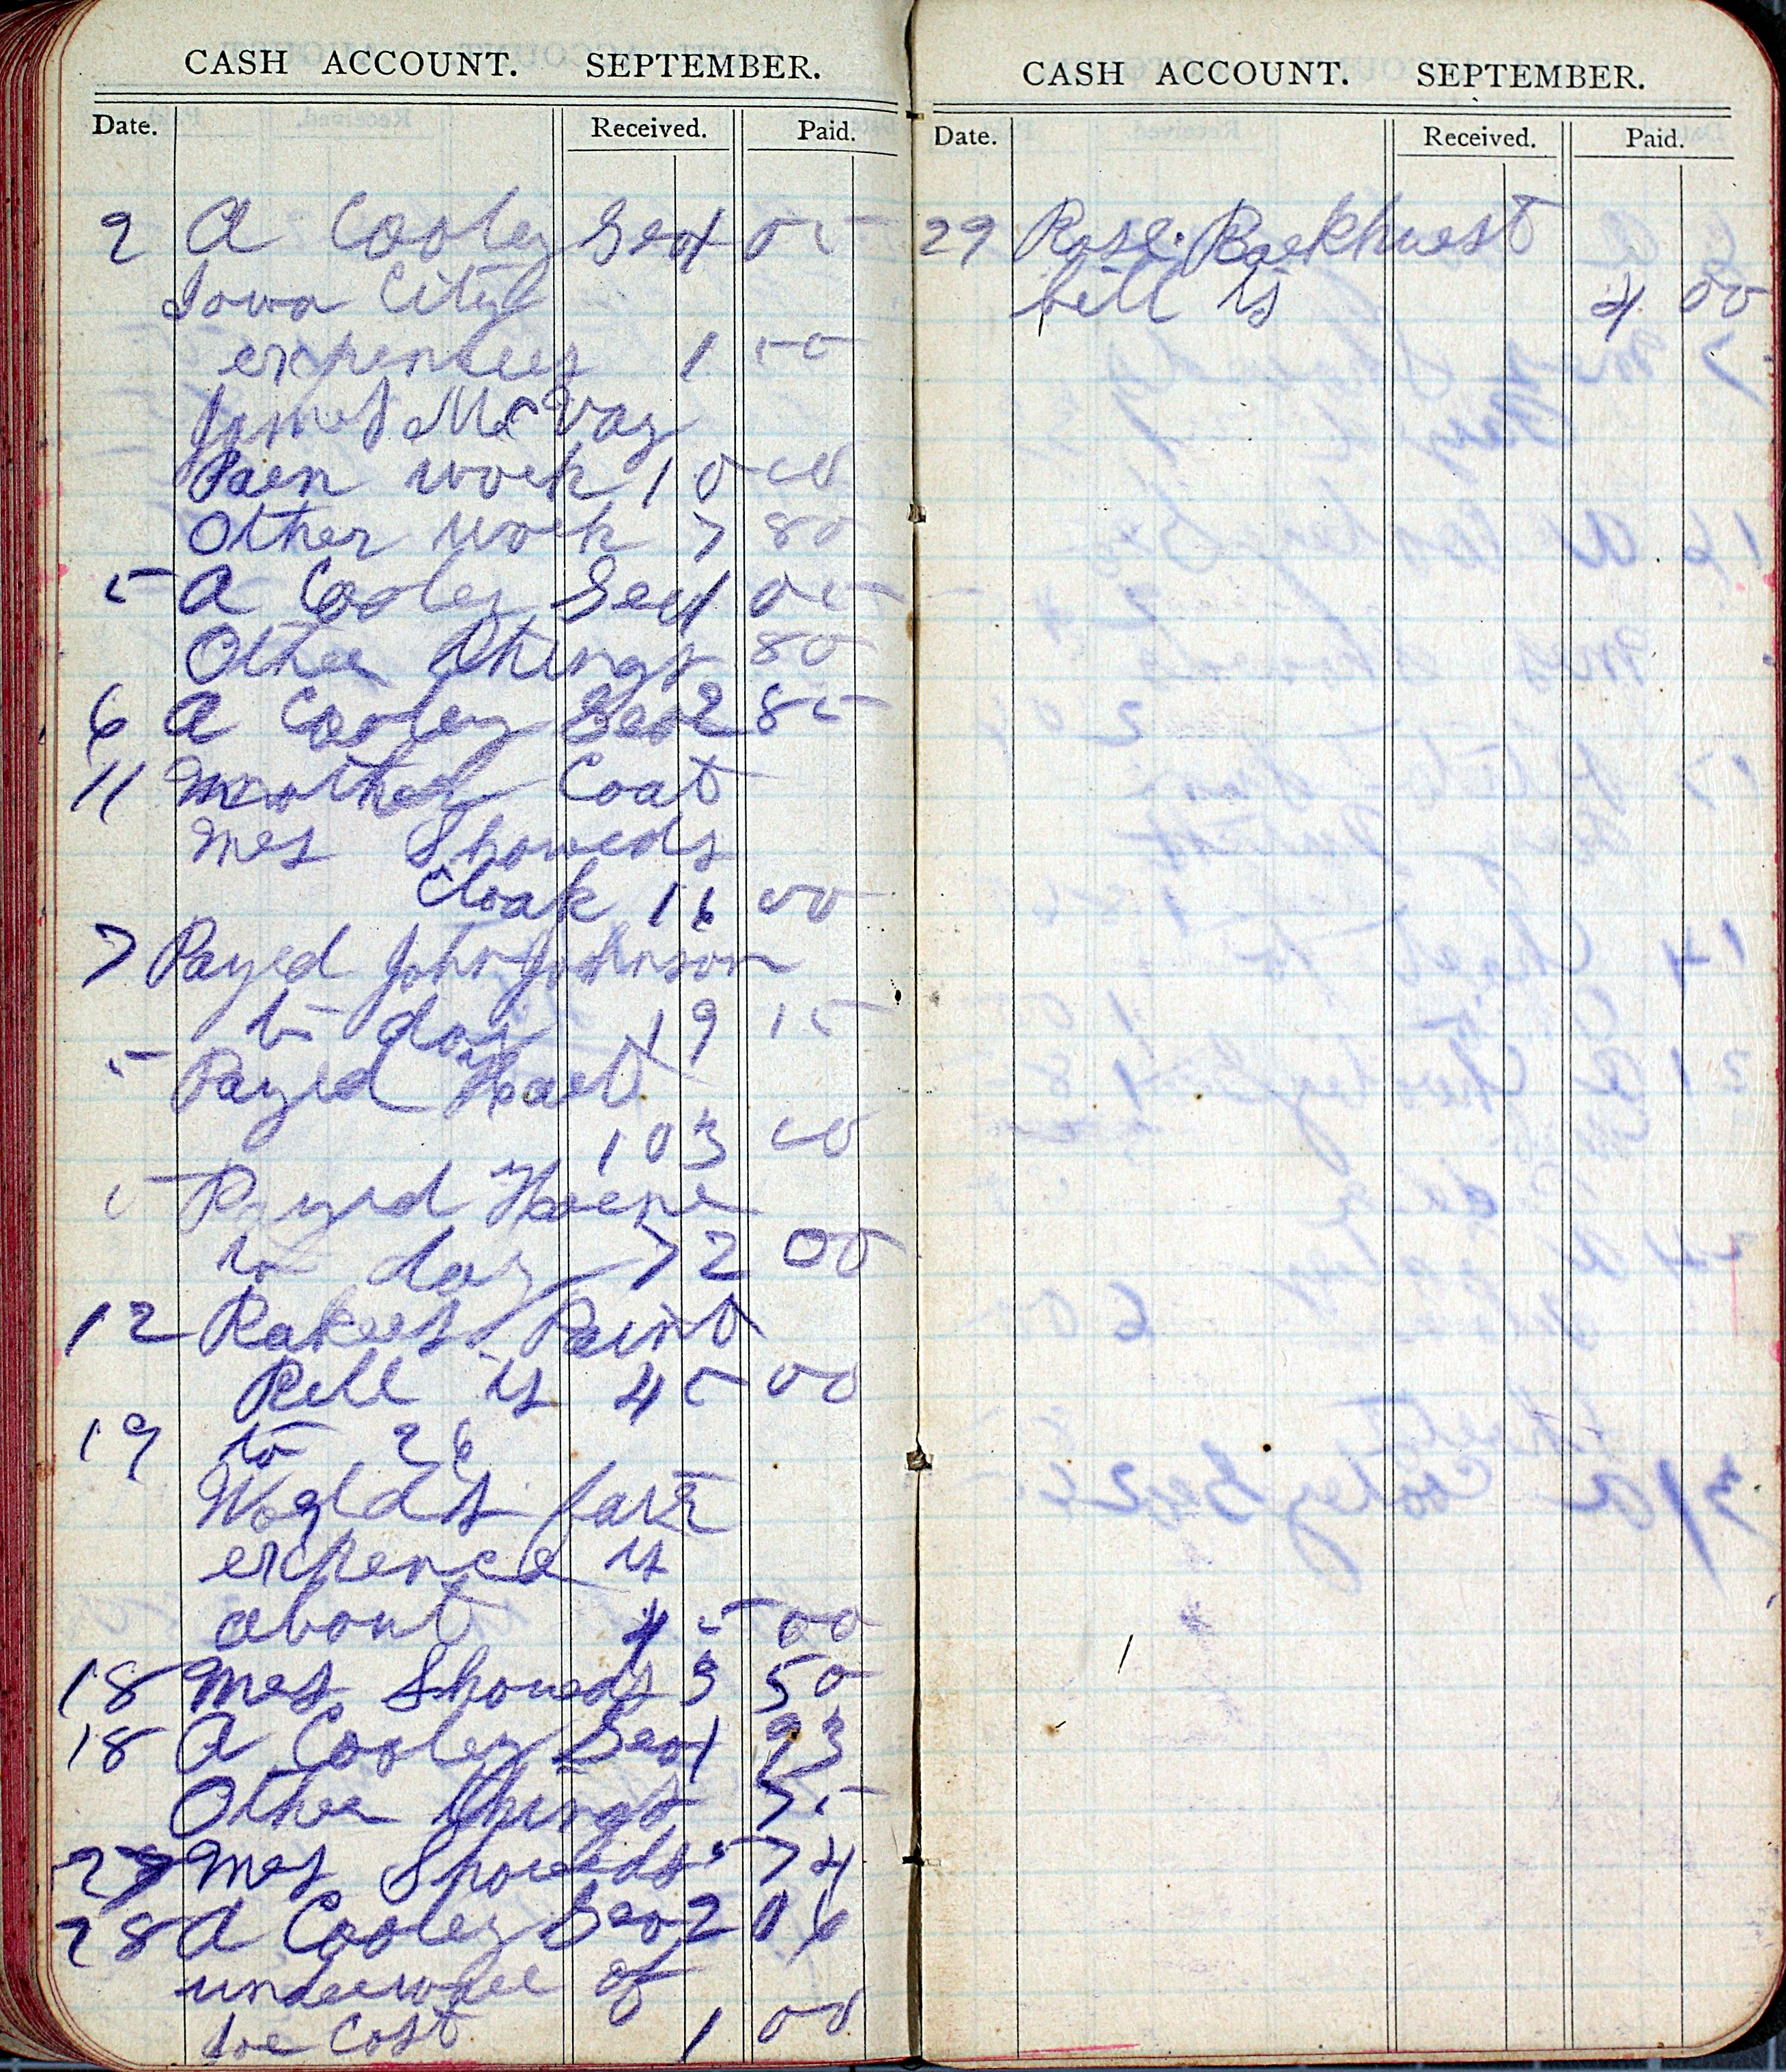 CASH ACCOUNT. SEPTEMBER.
Date. Received. Paid.
2 A Cooley Geo 4 05
Iowa City
expenses 1 50
James McVay
Paen work 10 00
Other work 7 80
5 A Cooley Geo 4 05
Other things 80
6 A Cooley Geo 2 85
11 Coat
Mrs Showeds
cloak 16 00
7 Payed John Johnson
to day 19 15
5 Payed
103 00
5 Payed
to day 72 00
12 Rakers Paint
Bill is 45 00
19 to 26
Worlds fair
expence is
about 45 00
18 Mrs Showeds 3 50
18 A Cooley Geo 1 93
Other things 75
27 Mrs Showeds 5 74
28 A Cooley Geo 2 06
underware of
Joe Cost 1 00
CASH ACCOUNT. SEPTEMBER.
Date. Received. Paid.
29 Rose Barkhurst
bill is 4 00